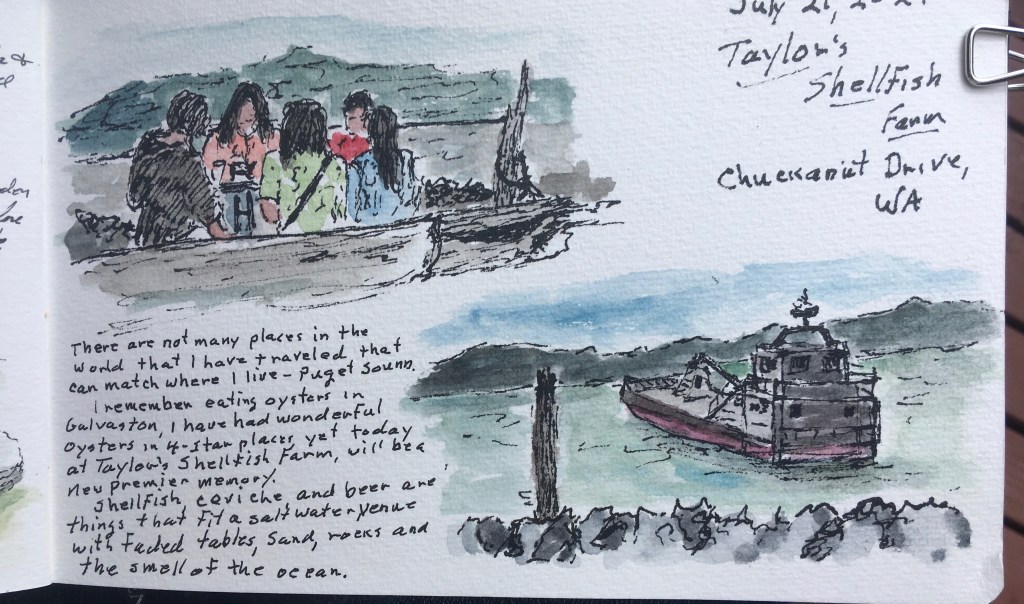 July 21, 202
Taylor's
Shellfish
Farm
Chuckanut Drive,
WA
H
There are not many places in the
world that I have traveled, that
can match where I live - Puget Sound.
I remember eating oysters in
Galvaston, I have had wonderful
oysters in 4-star places, yet today
at Taylor's Shellfish Farm, will be a
new premier memory.
Shellfish, ceviche and beer are
things that fit a saltwater venue
with faded tables, sand, rocks and
the smell of the ocean.